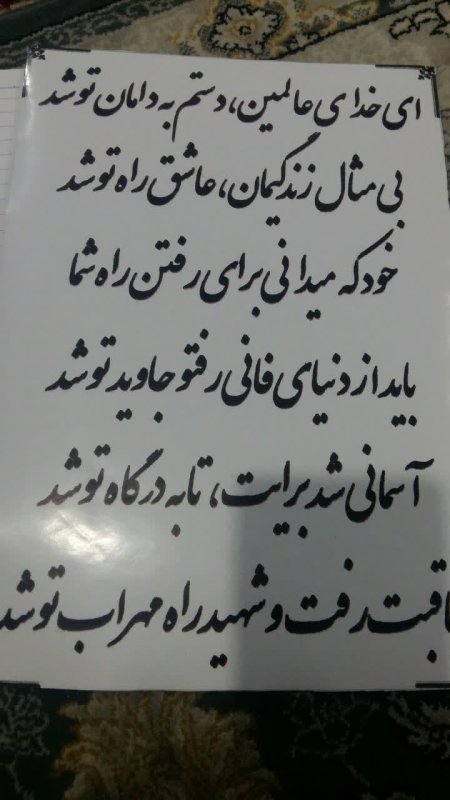 ای خدای عالمین، دستم به دامان تو شد
بی مثال زندگیمان، عاشق راه تو شد
خود که میدانی برای رفتن راه شما
باید از دنیای فانی رفتو جاوید تو شد
آسمانی شد برایت، تا به درگاه تو شد
اقبت رفت و شهید راه مهراب تو شد